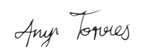 Anyi Torres